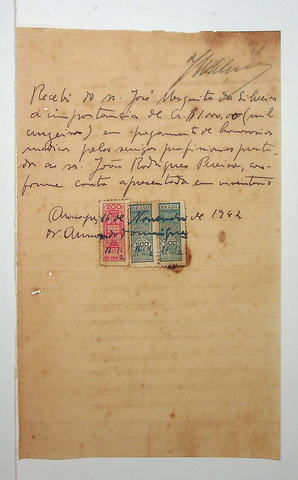 Recebi do sr. José Mesquita da Silveira
a importancia de Cr.$1.000,00 (mil
cruzeiros) em pagamento de honorarios
medicos pelos serviços profissionaes presta-
do ao sr. João Rodrigues Pereira, con-
forme conta apresentada em inventario
16 de Novembro de 1942
Dr. Armando Domingues
200
200
200